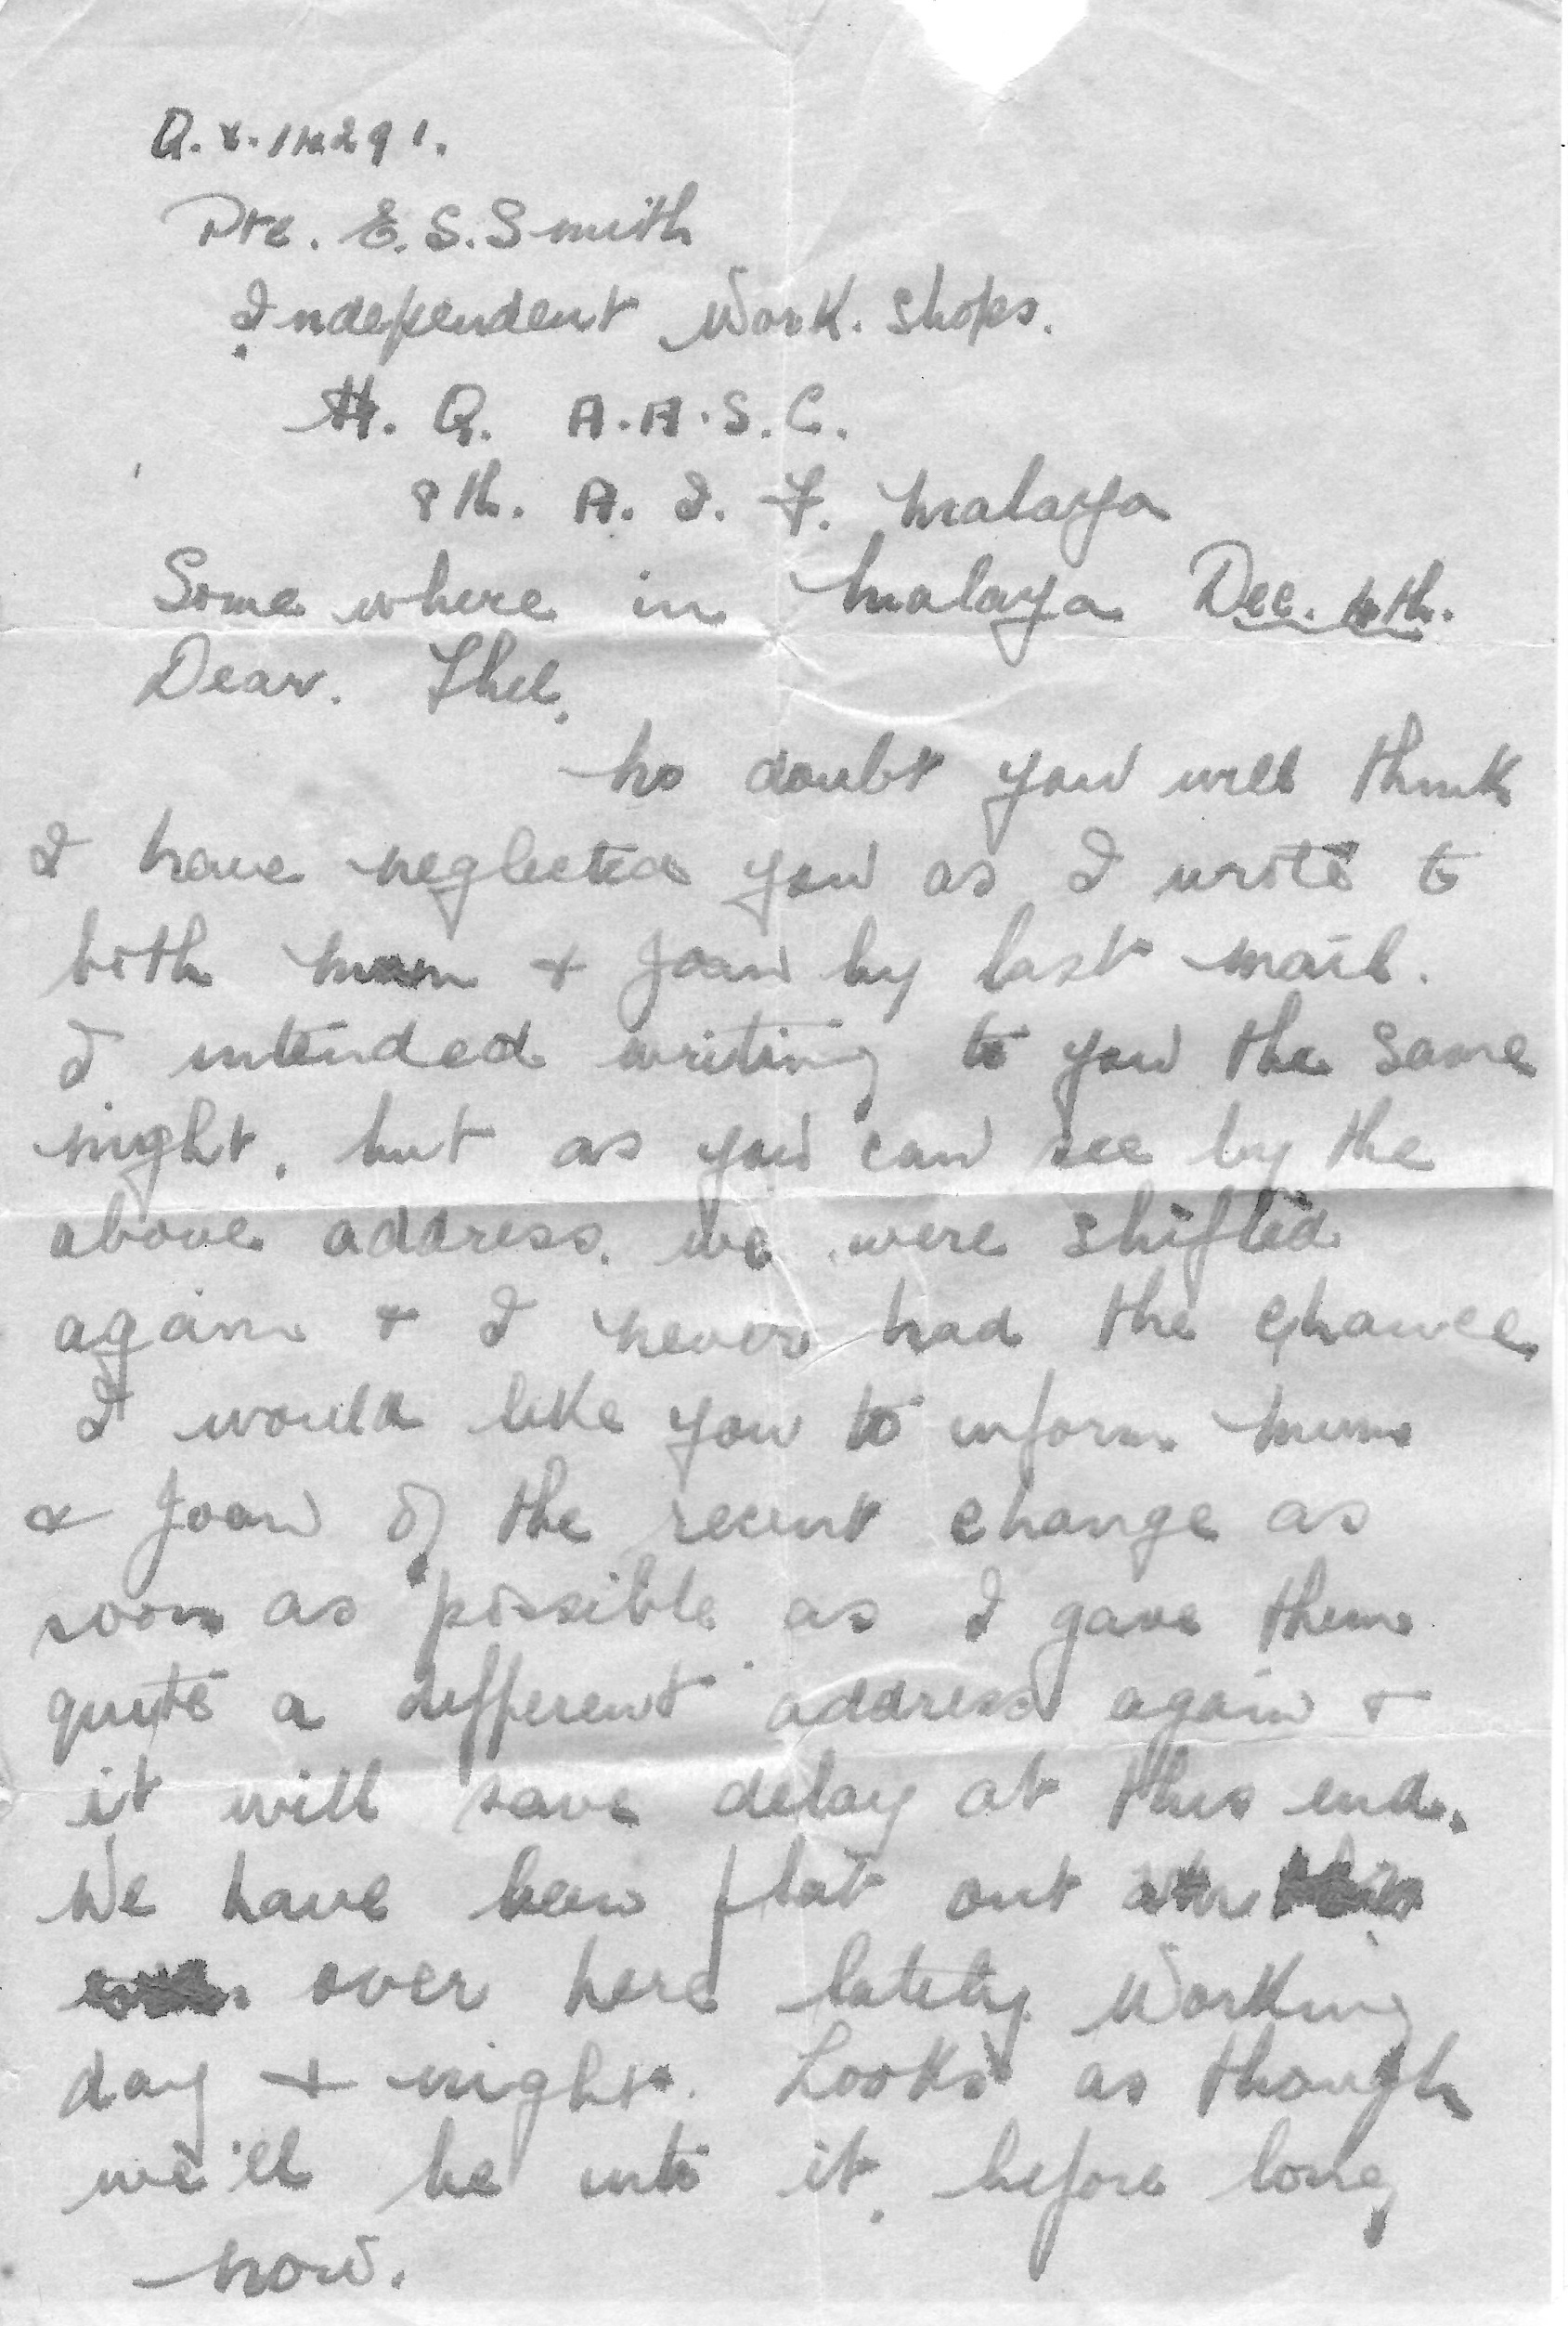 Q.X. 14291.
Pte. E. S. Smith
Independent Work. Shops.
H. Q. A.A.S.C.
8th. A. I. F. Malaya
Some where in Malaya Dec. 4th.
Dear. Thel.
No doubt you will think
I have neglected you as I wrote to
both Mum & Joan by last mail.
I intended writing to you the same
night. but as you can see by the
above address. we were shifted
again & I never had the chance
I would like you to inform Mum
& Joan of the recent change as
soon as possible as I gave them
quite a different address again &
it will save delay at this end.
We have been flat out
over here lately. Working
day & night. Looks as though
we'll be into it. before long
now.